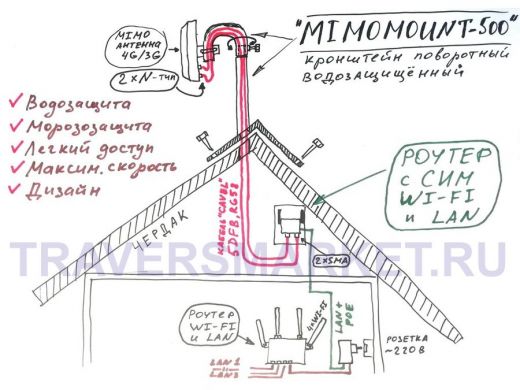 "MIMOMOUNT-500"
кронштейн поворотный
водозащищённый
MIMO
АНТЕННА
4G/3G
2×N-тип
✓ Водозащита
✓ Морозозащита
✓ Легкий доступ
✓ Максим. скорость
✓ Дизайн
РОУТЕР
с СИМ
WI-FI
и LAN
ЧЕРДАК
КАБЕЛЬ "CAVEL"
5DFB, RG58
2×SMA
TRAVERSMARKET.RU
РОУТЕР
WI-FI
и LAN
4×WI-FI
LAN +
POE
РОЗЕТКА
~220В
LAN1
LAN3